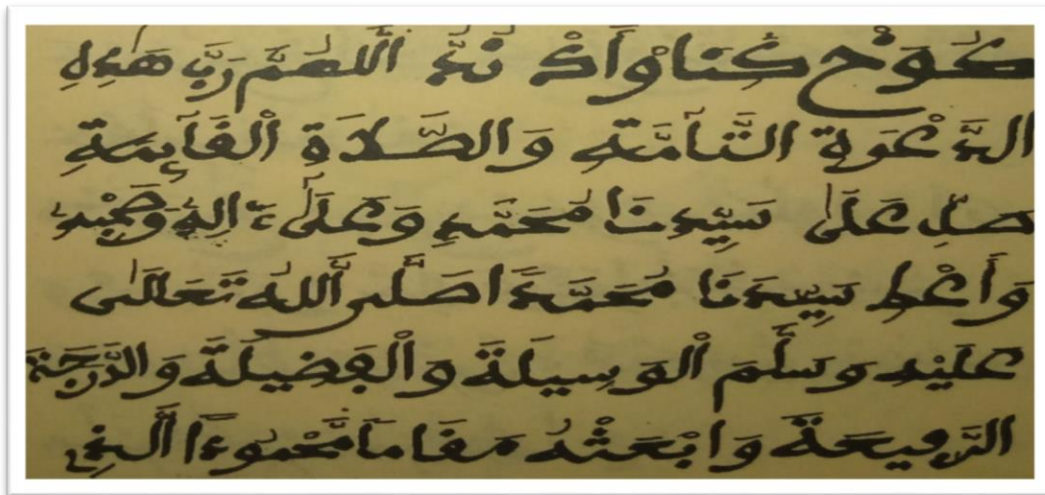 اَللَّهُمَّ رَبَّ هَذِهِ
الدَّعْوَةِ التَّآمَّةِ وَالصَّلَاةِ الْقَآئِمَةِ
صَلِّ عَلَى سَيِّدِنَا مُحَمَّدٍ وَعَلَى ءَالِهِ وَصَحْبِهِ
وَأَعْطِ سَيِّدَنَا مُحَمَّدًا صَلَّى اَللَّهُ تَعَالَى
عَلَيْهِ وَسَلَّمَ الْوَسِيلَةَ وَالْفَضِيلَةَ وَالدَّرَجَةَ
الرَّفِيعَةَ وَابْعَثْهُ مَقَامًا مَّحْمُودًا الَّذِي